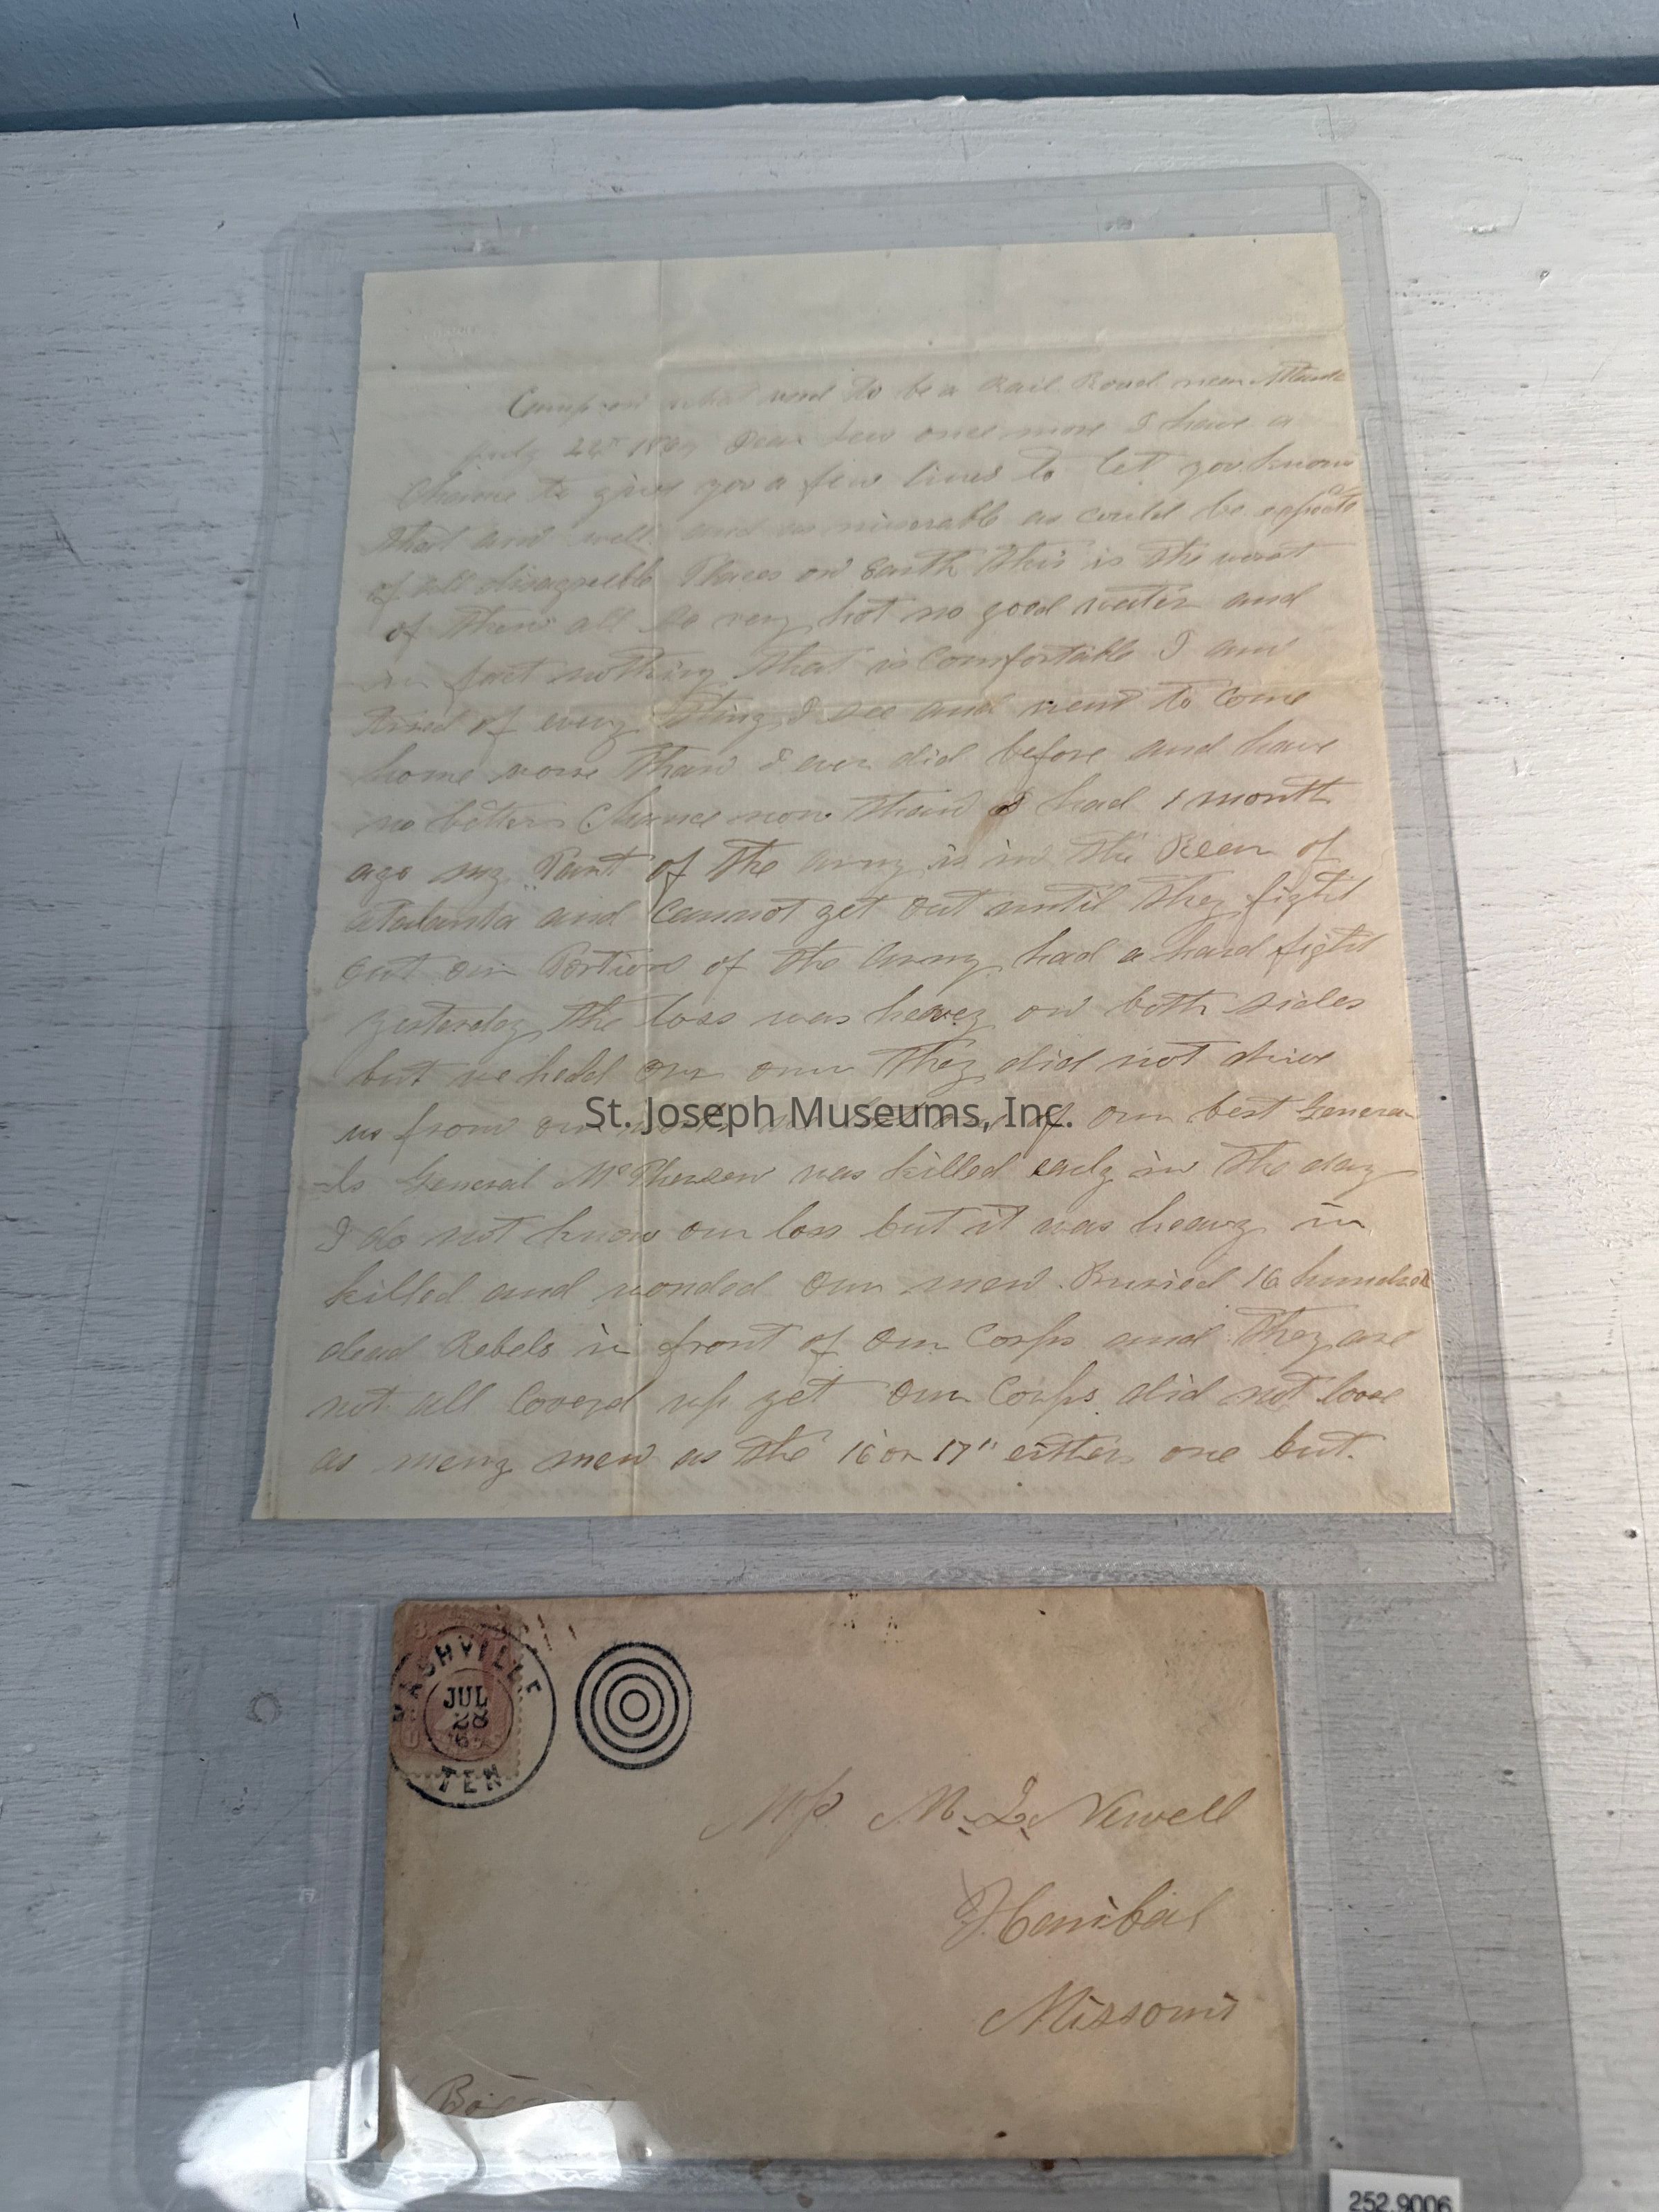 Camp on what used to be a Rail Road near Atlanta
July 1864 Dear Lew once more I have a
Chance to give you a few lines to let you know
that am well and as miserable as could be expected
of all disagreeble Places on Earth this is the worst
of them all so very hot no good water and
in fact nothing that is Comfortable I am
tired of every thing I see and want to come
home worse than I ever did before and have
no better Chance now than I had 1 month
ago my Part of the army is in the Rear of
atalanta and Cannot get out until they fight
out our Portion of the army had a hard fight
yesterday the loss was heavey on both sides
but we held our own they did not drive
us from our works we lost one of our best Genera
ls General McPherson was killed early in the day
I do not know our loss but it was heavy in
killed and wonded Our men Buried 16 hundred
dead Rebels in front of Our Corps and they are
not all Coverd up yet Our Corps did not loose
as meny men as the 16 or 17" either one but.
St. Joseph Museums, Inc.
NASHVILLE
JUL
28
TEN
M. L. Newell
Hanibal
Missouri
Box
252.9006